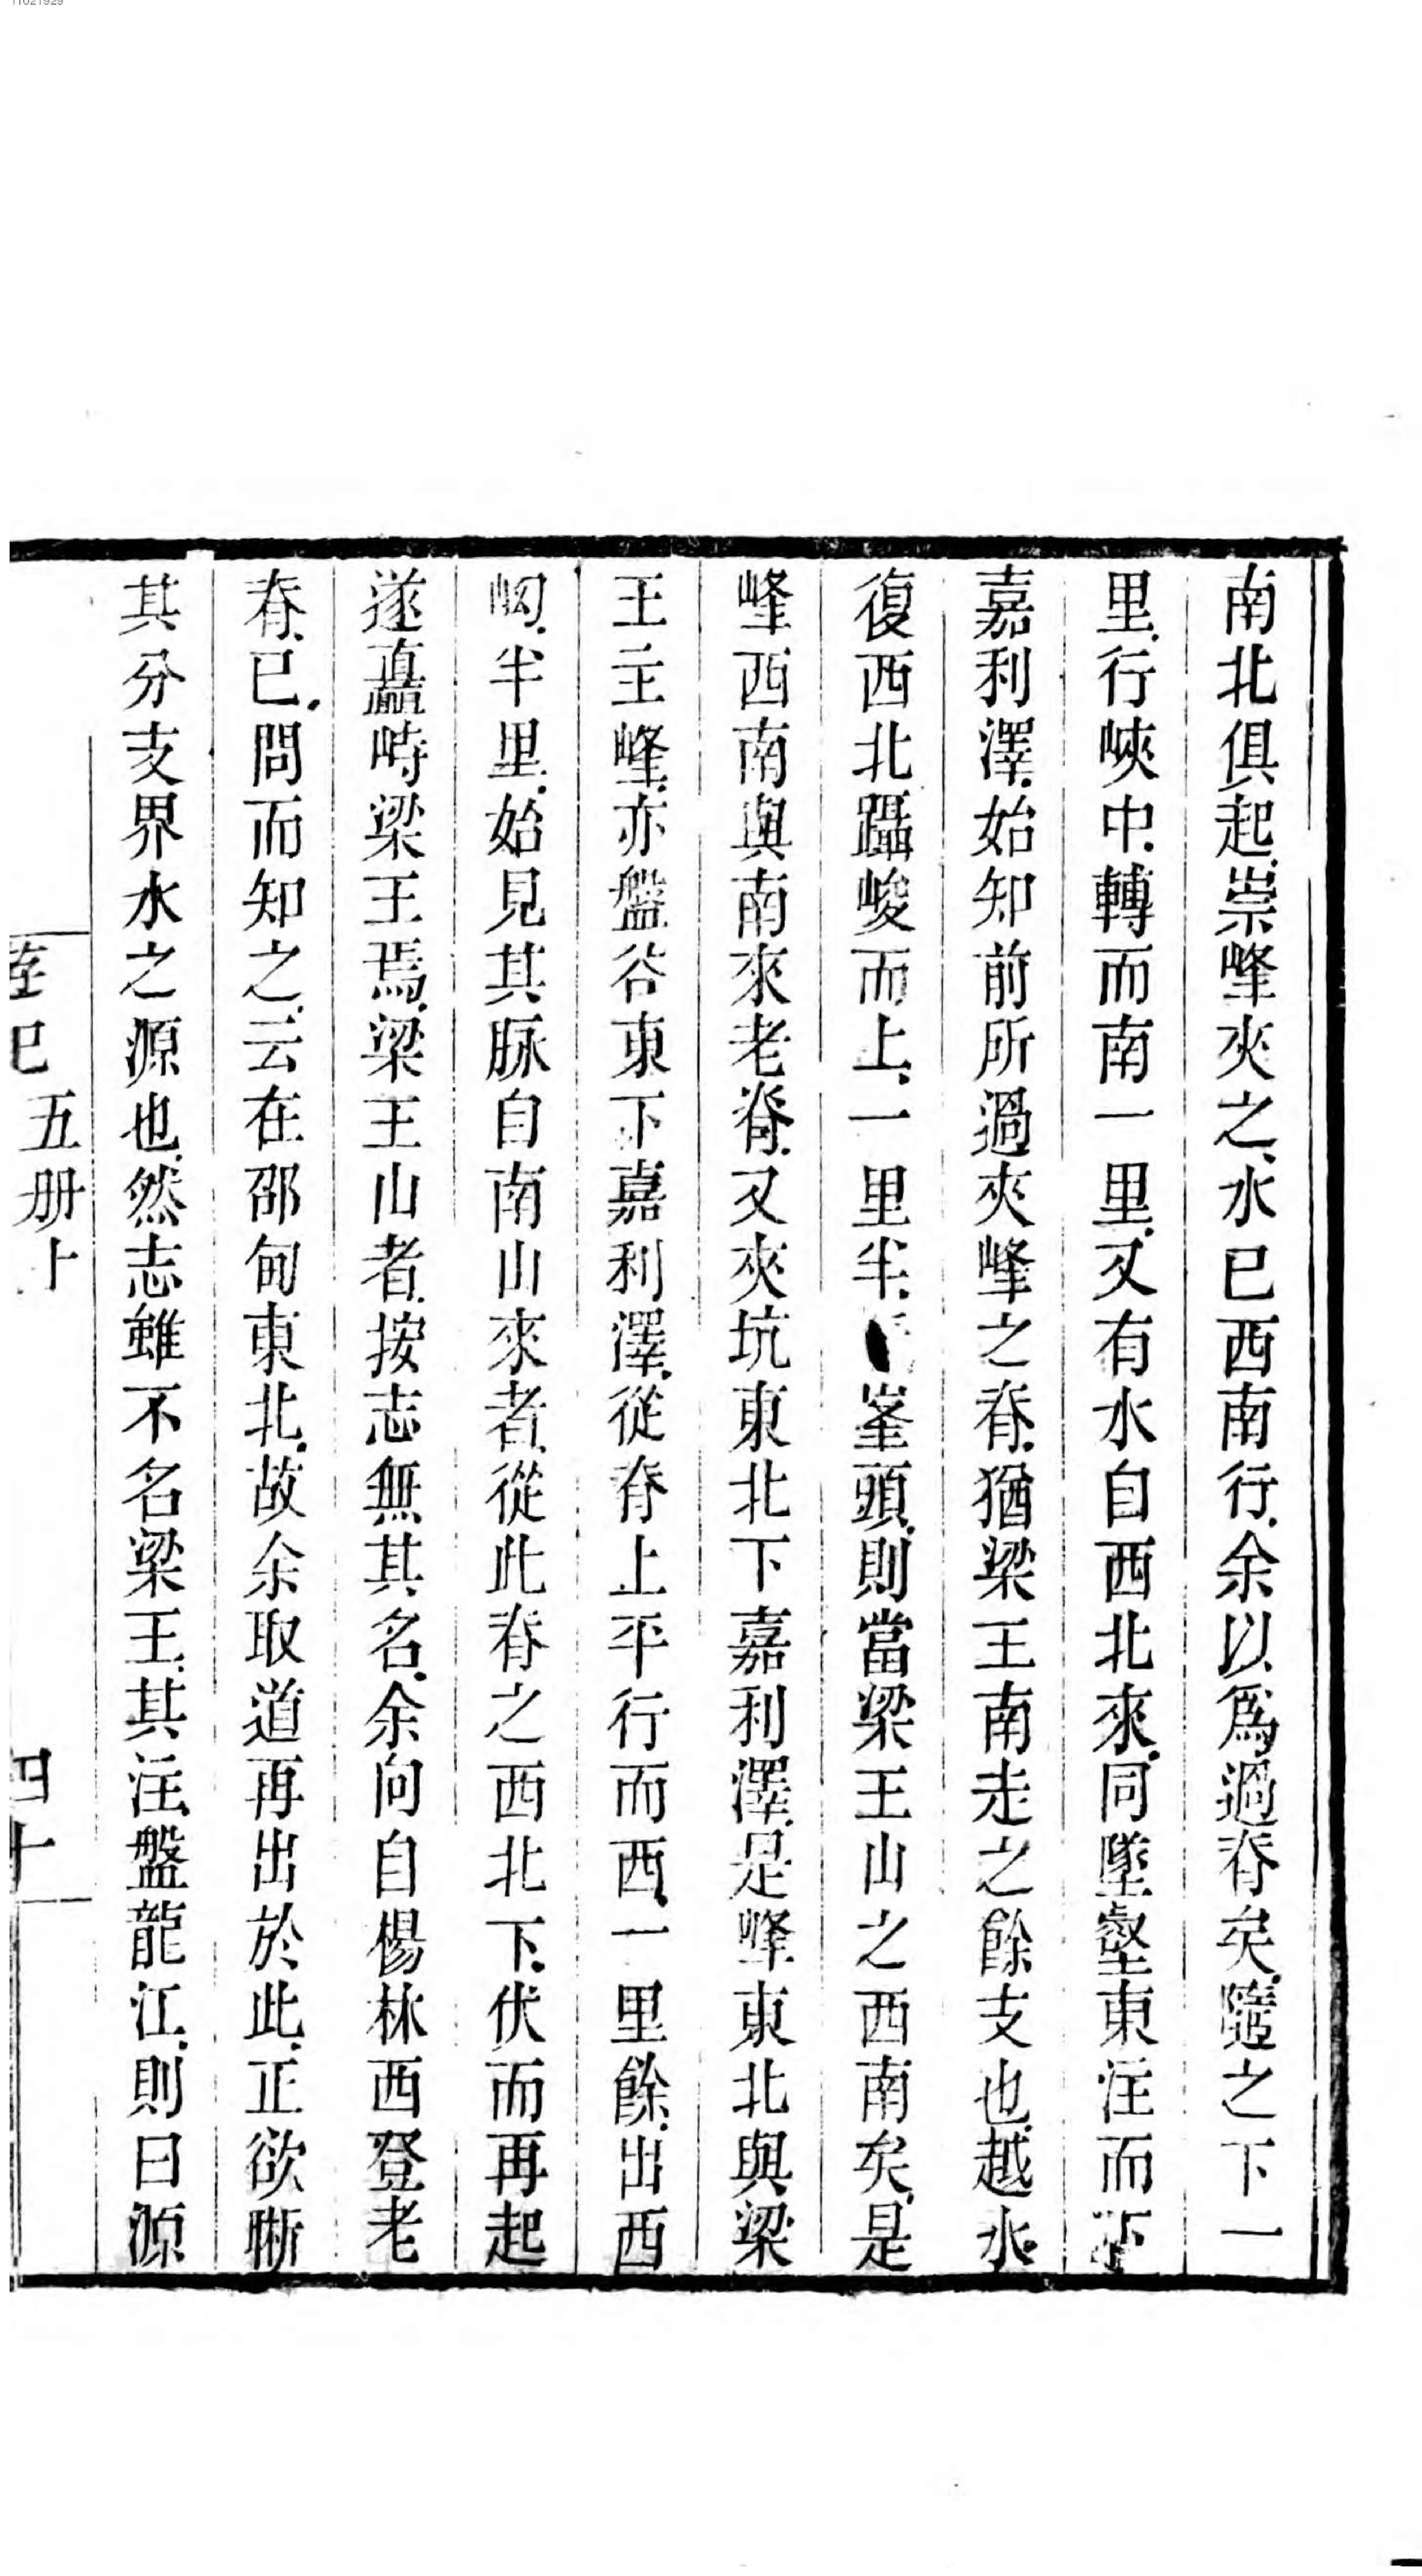 南北俱起崇峰夾之水已西南行余以爲過脊矣隨之下一
里行峽中轉而南一里又有水自西北來同墜壑東注而下
嘉利澤始知前所過夾峰之脊猶梁王南走之餘支也越水
復西北躡峻而上一里半峯頭則當梁王山之西南矣是
峰西南與南來老脊又夾坑東北下嘉利澤是峰東北與梁
王主峰亦盤谷東下嘉利澤從脊上平行而西一里餘出西
坳半里始見其脉自南山來者從此脊之西北下伏而再起
遂矗峙梁王焉梁王山者按志無其名余向自楊林西登老
脊已問而知之云在邵甸東北故余取道再出於此正欲晰
其分支界水之源也然志雖不名梁王其注盤龍江則曰源
五册上
四十